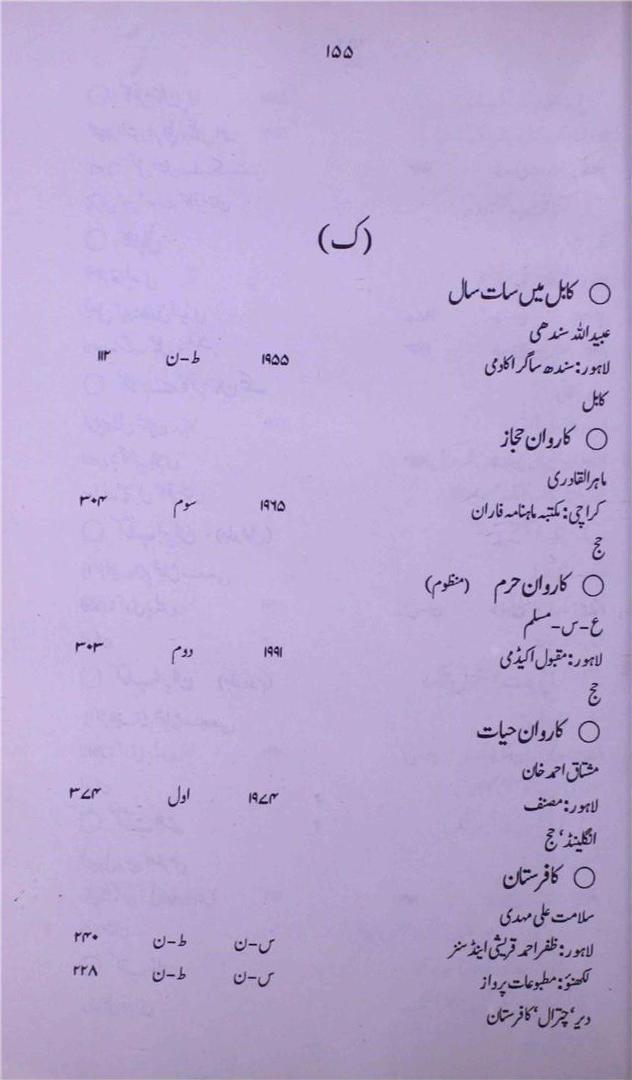 ۱۵۵
(ک)
○ کابل میں سات سال
عبیداللہ سندھی
لاہور: سندھ ساگر اکادمی ۱۹۵۵ ط-ن ۱۱۲
کابل
○ کاروان حجاز
ماہر القادری
کراچی: مکتبہ ماہنامہ فاران ۱۹۶۵ سوم ۳۰۴
حج
○ کاروان حرم (منظوم)
ع-س-مسلم
لاہور: مقبول اکیڈمی ۱۹۹۱ دوم ۳۰۳
حج
○ کاروان حیات
مشتاق احمد خان
لاہور: مصنف ۱۹۷۴ اول ۳۷۴
انگلینڈ، حج
○ کافرستان
سلامت علی مہدی
لاہور: ظفر احمد قریشی اینڈ سنز س-ن ط-ن ۲۴۰
لکھنؤ: مطبوعات پرواز س-ن ط-ن ۲۲۸
دیر، چترال، کافرستان